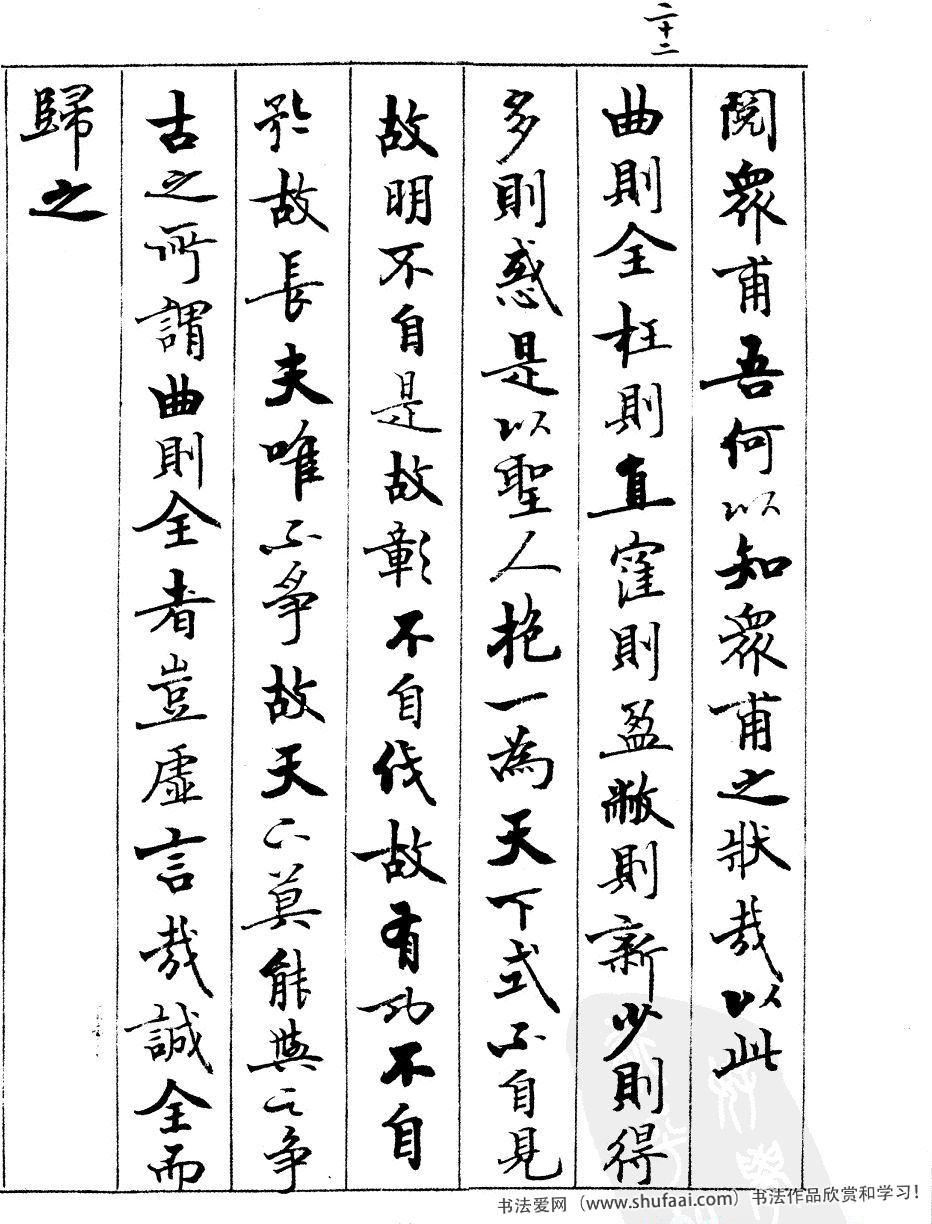 二十二
閱衆甫吾何以知衆甫之狀哉以此
曲則全枉則直窪則盈敝則新少則得
多則惑是以聖人抱一為天下式不自見
故明不自是故彰不自伐故有功不自
矜故長夫唯不爭故天下莫能與之争
古之所謂曲則全者豈虛言哉誠全而
歸之
书法爱网（www.shufaai.com）书法作品欣赏和学习！